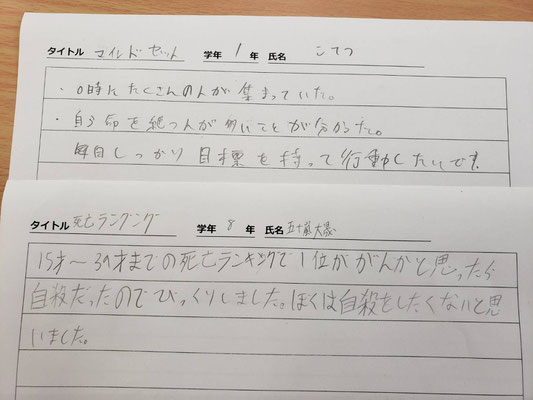 タイトル マインドセット 学年 1 年 氏名 こてつ
・0時にたくさんの人が集まっていた。
・自ら命を絶つ人が多いことが分かった。
毎日しっかり目標を持って行動したいです
タイトル 死亡ランキング 学年 8 年 氏名 五十嵐大
15才〜39才までの死亡ランキングで1位ががんかと思ったら
自殺だったのでびっくりしました。ぼくは自殺をしたくないと思
いました。